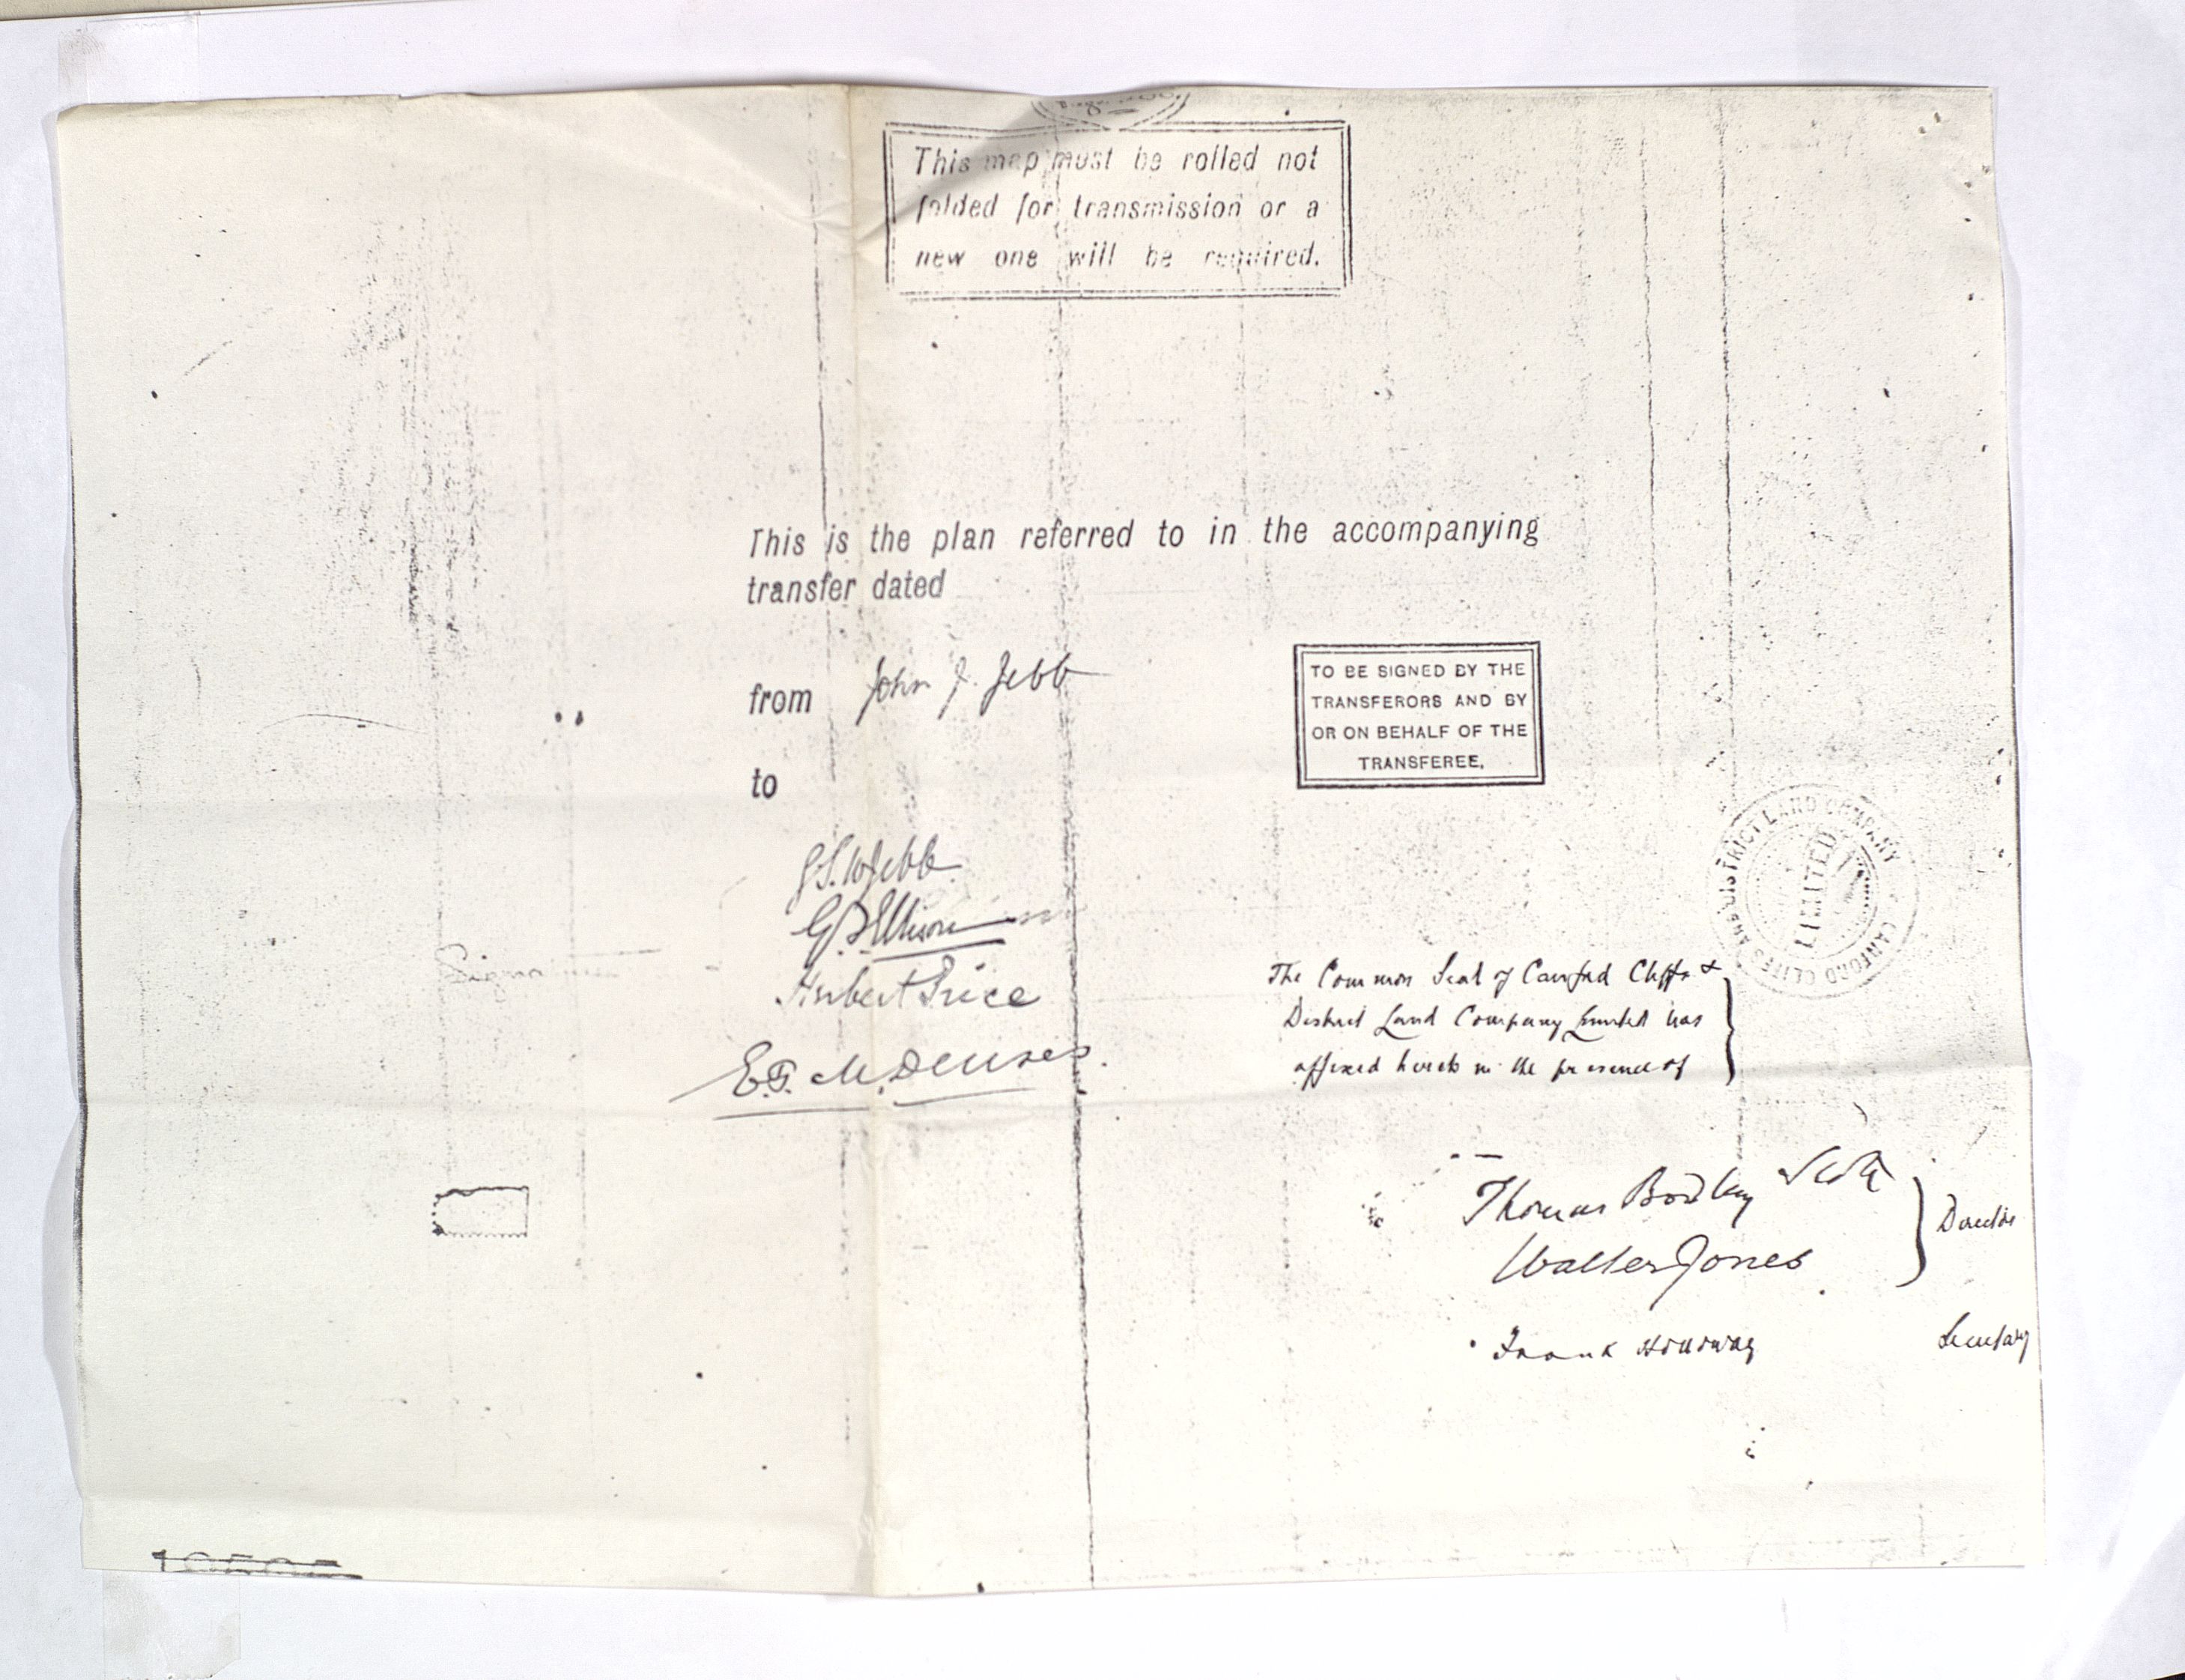 This map must be rolled not
folded for transmission or a
new one will be required.
This is the plan referred to in the accompanying
transfer dated
from John J. Jebb
TO BE SIGNED BY THE
TRANSFERORS AND BY
OR ON BEHALF OF THE
TRANSFEREE.
to
CANFORD CLIFFS AND DISTRICT LAND COMPANY
LIMITED
G.S.W. Jebb
Herbert Price
The Common Seal of Canford Cliffs &
District Land Company Limited was
affixed hereto in the presence of
Thomas Bowley Scott
Walter Jones
Directors
Frank Holloway
Secretary